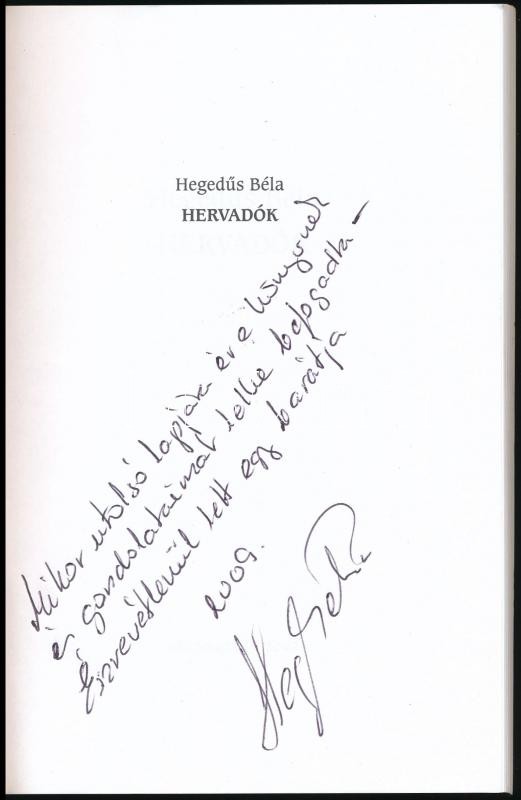 Hegedűs Béla
HERVADÓK
Mikor utolsó lapjára ér e könyvnek
és gondolataimat lelke befogadta –
Észrevétlenül lett egy barátja
2009.